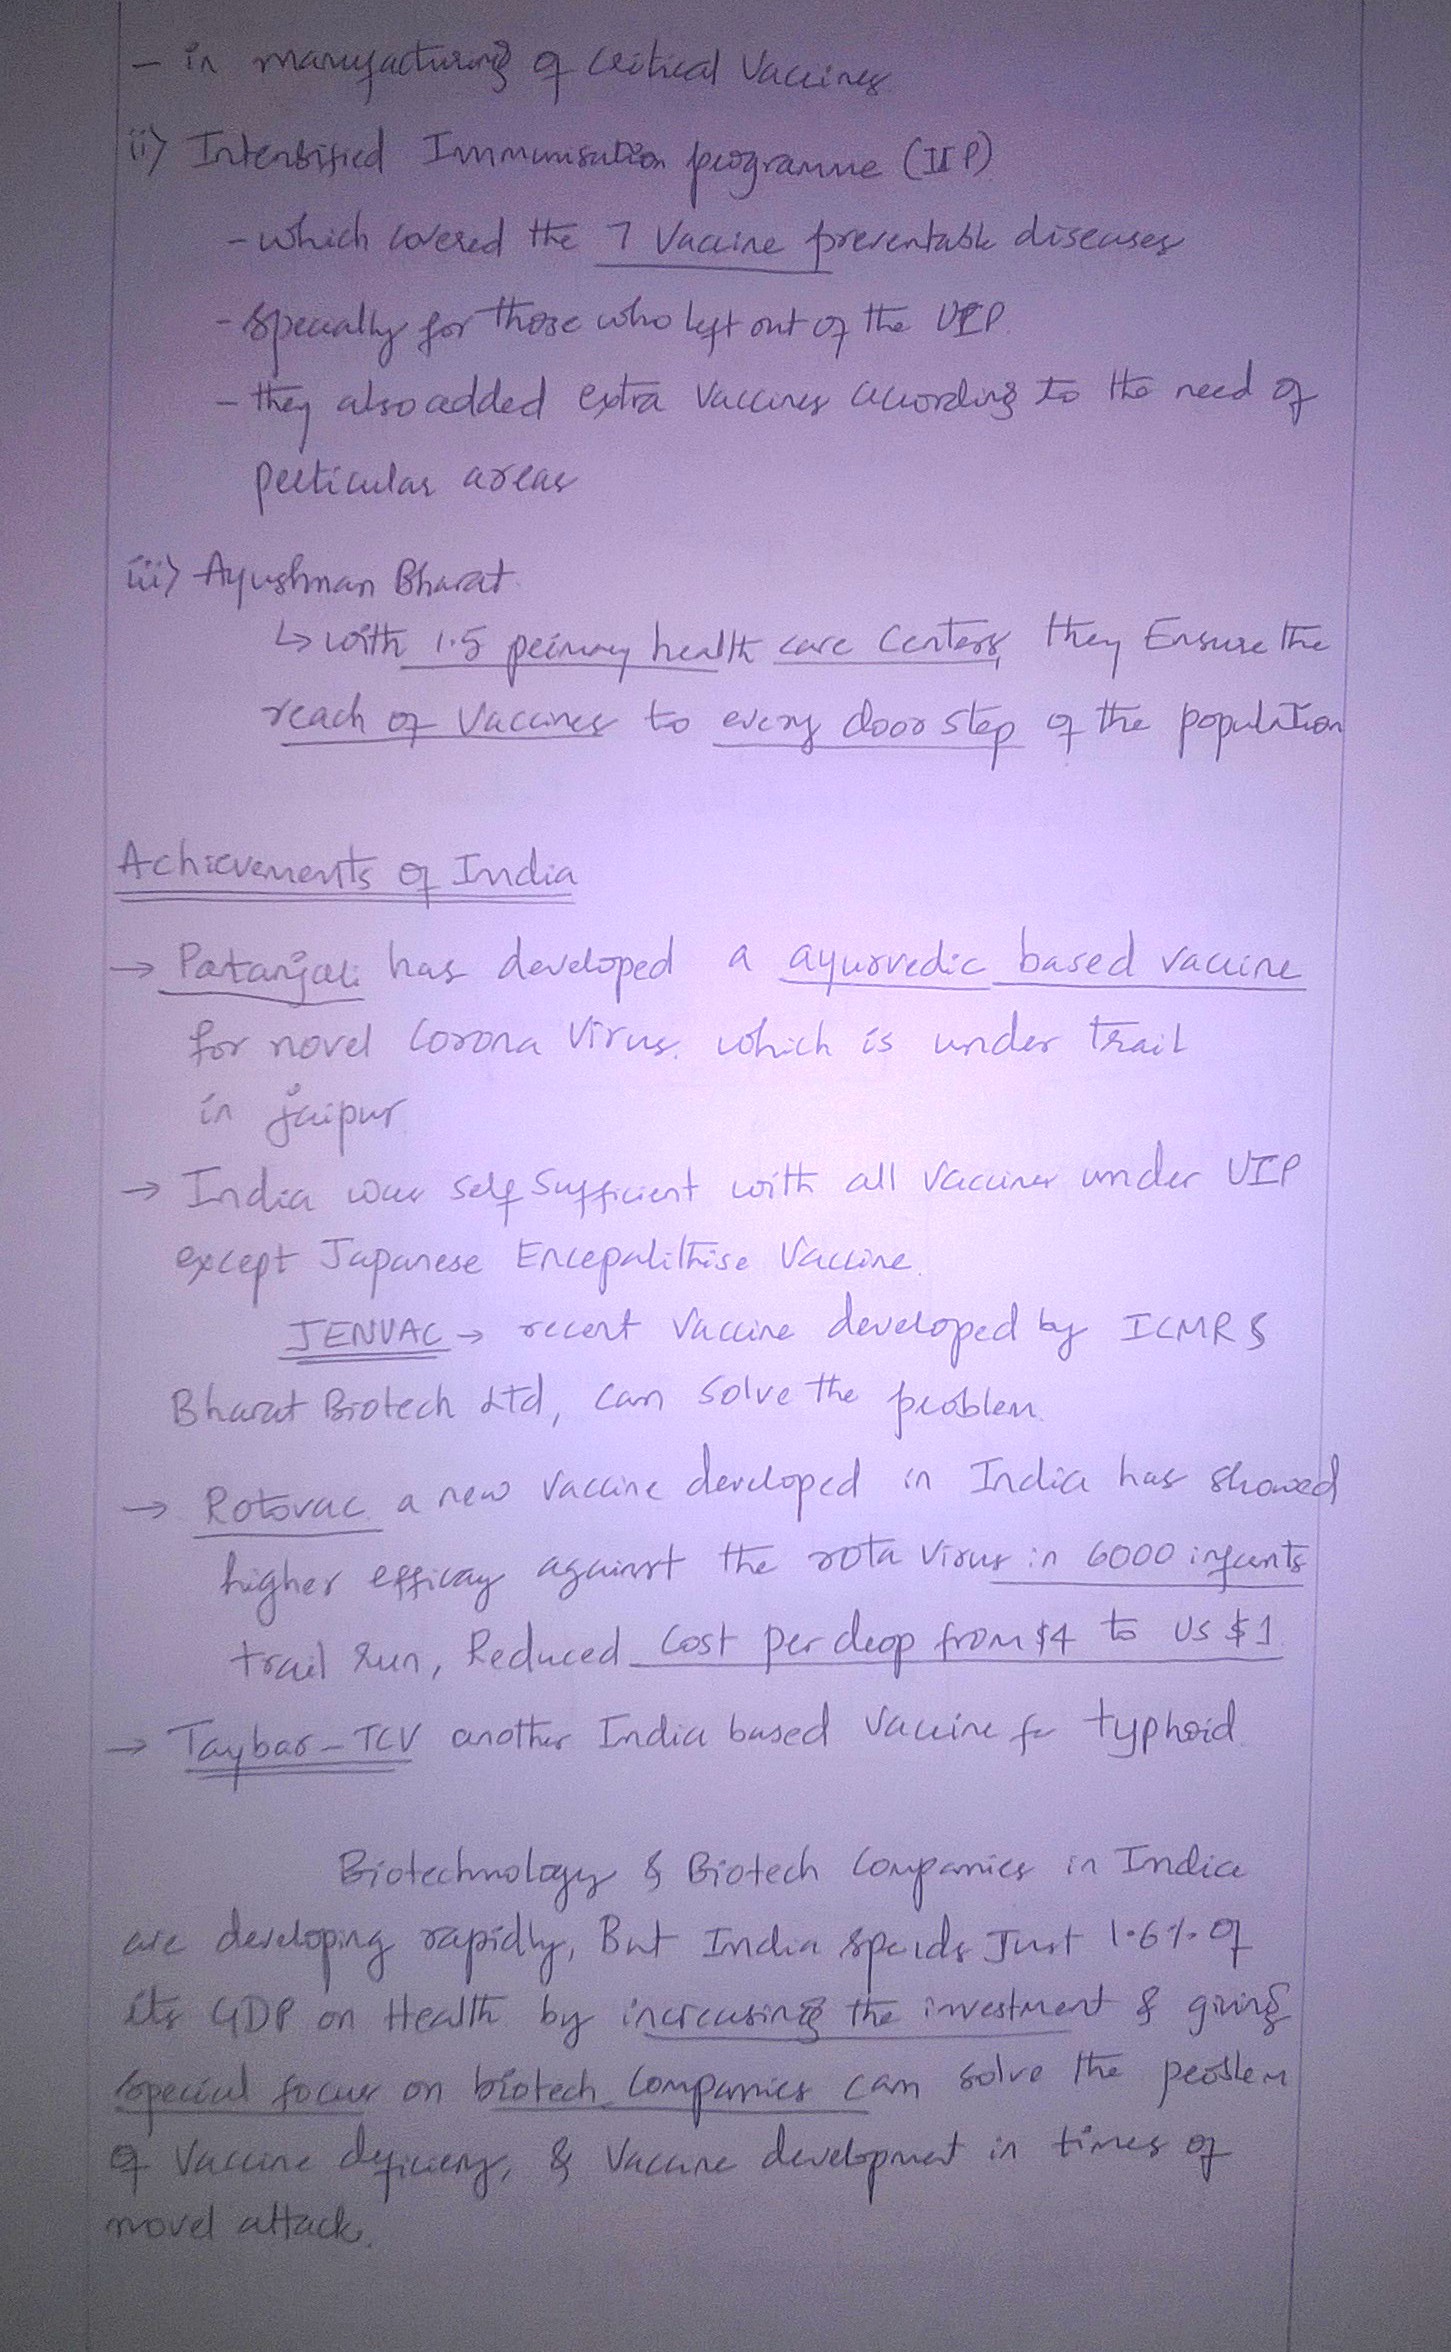 - in manufacturing of critical Vaccines
ii) Intensified Immunisation programme (IIP)
- which covered the 7 Vaccine preventable diseases
- specially for those who left out of the UIP.
- they also added extra vaccines according to the need of
perticular areas
iii) Ayushman Bharat
↳ with 1.5 primary health care Centers, they Ensure the
reach of Vaccines to every door step of the population
Achievements of India
→ Patanjali has developed a ayurvedic based vaccine
for novel Corona Virus. which is under trail
in jaipur
→ India was self sufficient with all vaccines under UIP
except Japanese Encepalithise Vaccine.
JENVAC → recent vaccine developed by ICMR &
Bharat Biotech Ltd, can solve the problem.
→ Rotovac a new vaccine developed in India has showed
higher efficay against the rota virus in 6000 infants
trail run, Reduced cost per drop from $4 to US $1
→ Taybar-TCV another India based vaccine for typhoid
Biotechnology & Biotech Companies in India
are developing rapidly, But India spends Just 1.6% of
its GDP on Health by increasing the investment & giving
special focus on biotech Companies can solve the problem
of Vaccine deficieny, & Vaccine development in times of
novel attack.